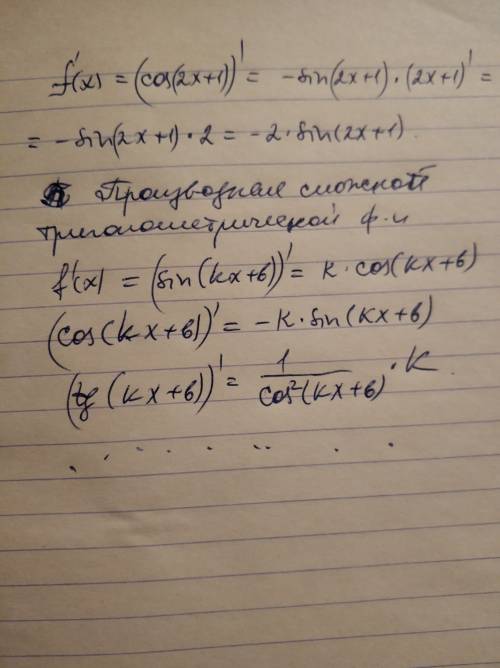 f'(x) = (cos(2x+1))' = -sin(2x+1)·(2x+1)' =
= -sin(2x+1)·2 = -2·sin(2x+1).
Производная сложной
тригонометрической ф-и
f'(x) = (sin(kx+b))' = k·cos(kx+b)
(cos(kx+b))' = -k·sin(kx+b)
(tg(kx+b))' = 1/cos²(kx+b)·k.
. . . . . . . .